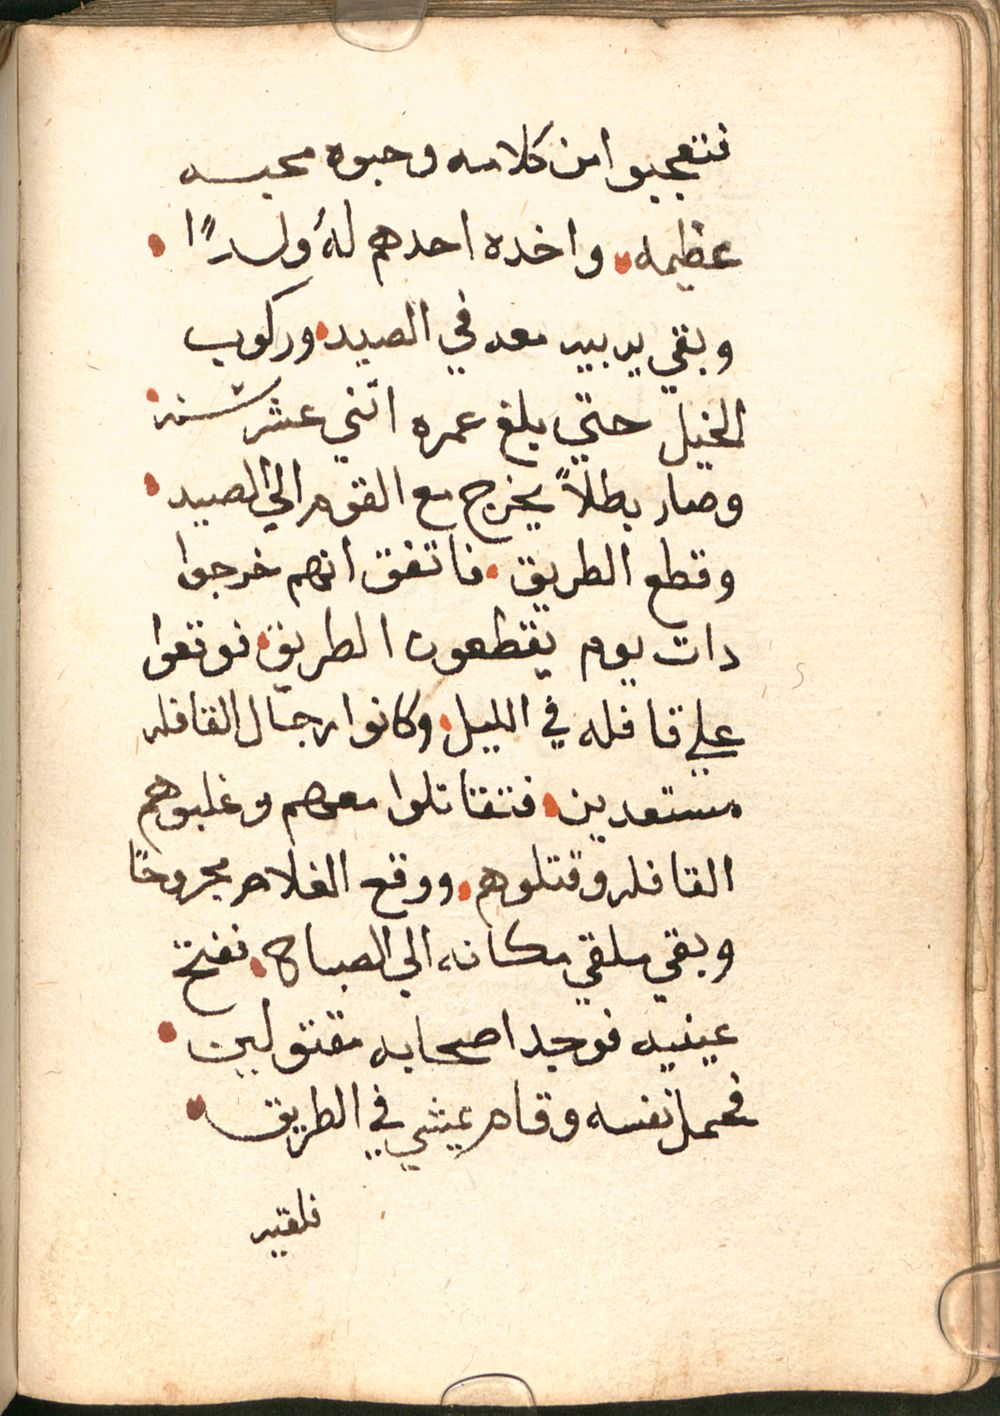 فتعجبوا من كلامه وحبوه محبه
عظيمه. واخده احدهم لهُ ولدًا.
وبقي يربيه معه في الصيد. وركوب
الخيل حتي بلغ عمره اثني عشر سنه.
وصار بطلاً يخرج مع القوم الي الصيد.
وقطع الطريق. فاتفق انهم خرجوا
دات يوم يقطعون الطريق. فوقعوا
علي قافله في الليل. وكانوا رجال القافله
مستعدين. فتقاتلوا معهم وغلبوهم
القافله وقتلوهم. ووقع الغلام مجروحًا
وبقي ملقي مكانه الي الصباح. ففتح
عينيه فوجد اصحابه مقتولين.
فحمل نفسه وقام يمشي في الطريق.
فلقيه